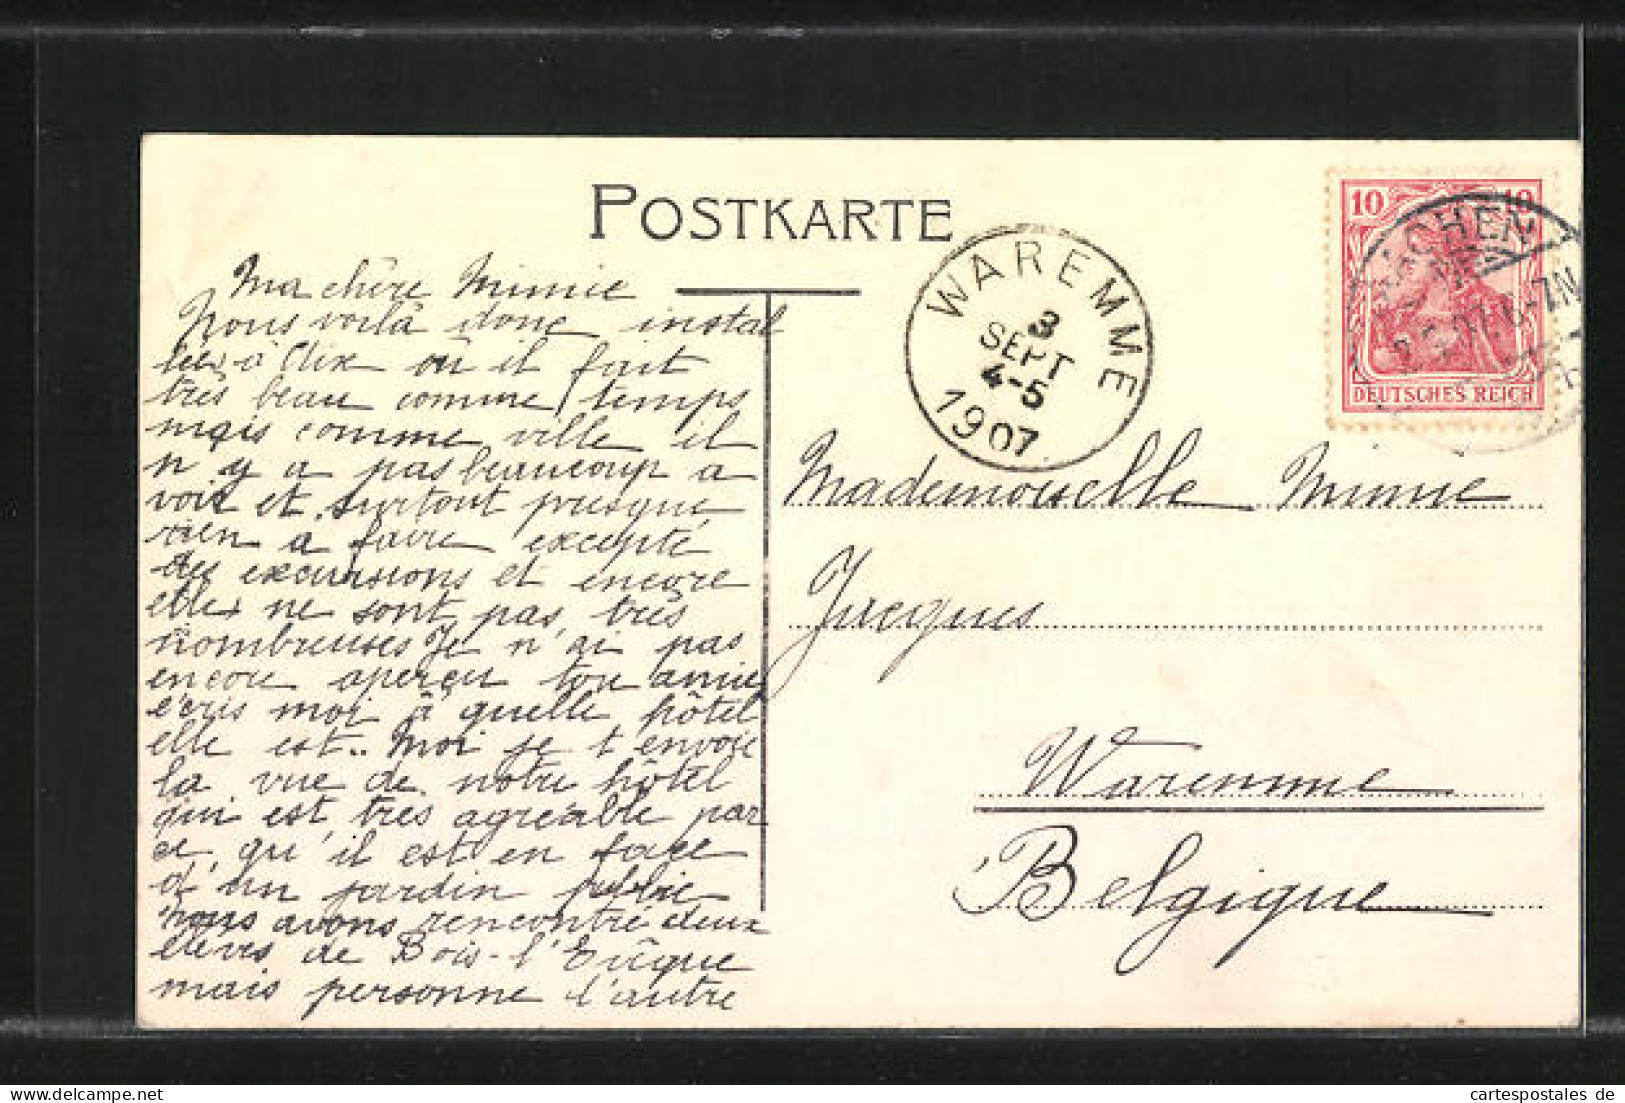 POSTKARTE
Ma chère Mimie
Nous voilà donc instal
lées à Aix où il fait
très beau comme temps
mais comme ville il
n'y a pas beaucoup a
voir et surtout presque
rien a faire excepté
des excursions et encore
elles ne sont pas très
nombreuses Je n'ai pas
encore aperçu ton amie
écris moi à quelle hôtel
elle est.. Moi je t'envoie
la vue de notre hôtel
qui est très agréable par
ce qu'il est en face
d'un jardin public
nous avons rencontré deux
élèves de Bois-l'Evêque
mais personne d'autre
WAREMME
3
SEPT
4-5
1907
10 10
DEUTSCHES REICH
AACHEN
2.9.07. 6-7N
Mademoiselle Mimie
Jacques
Waremme
Belgique
cartespostales de